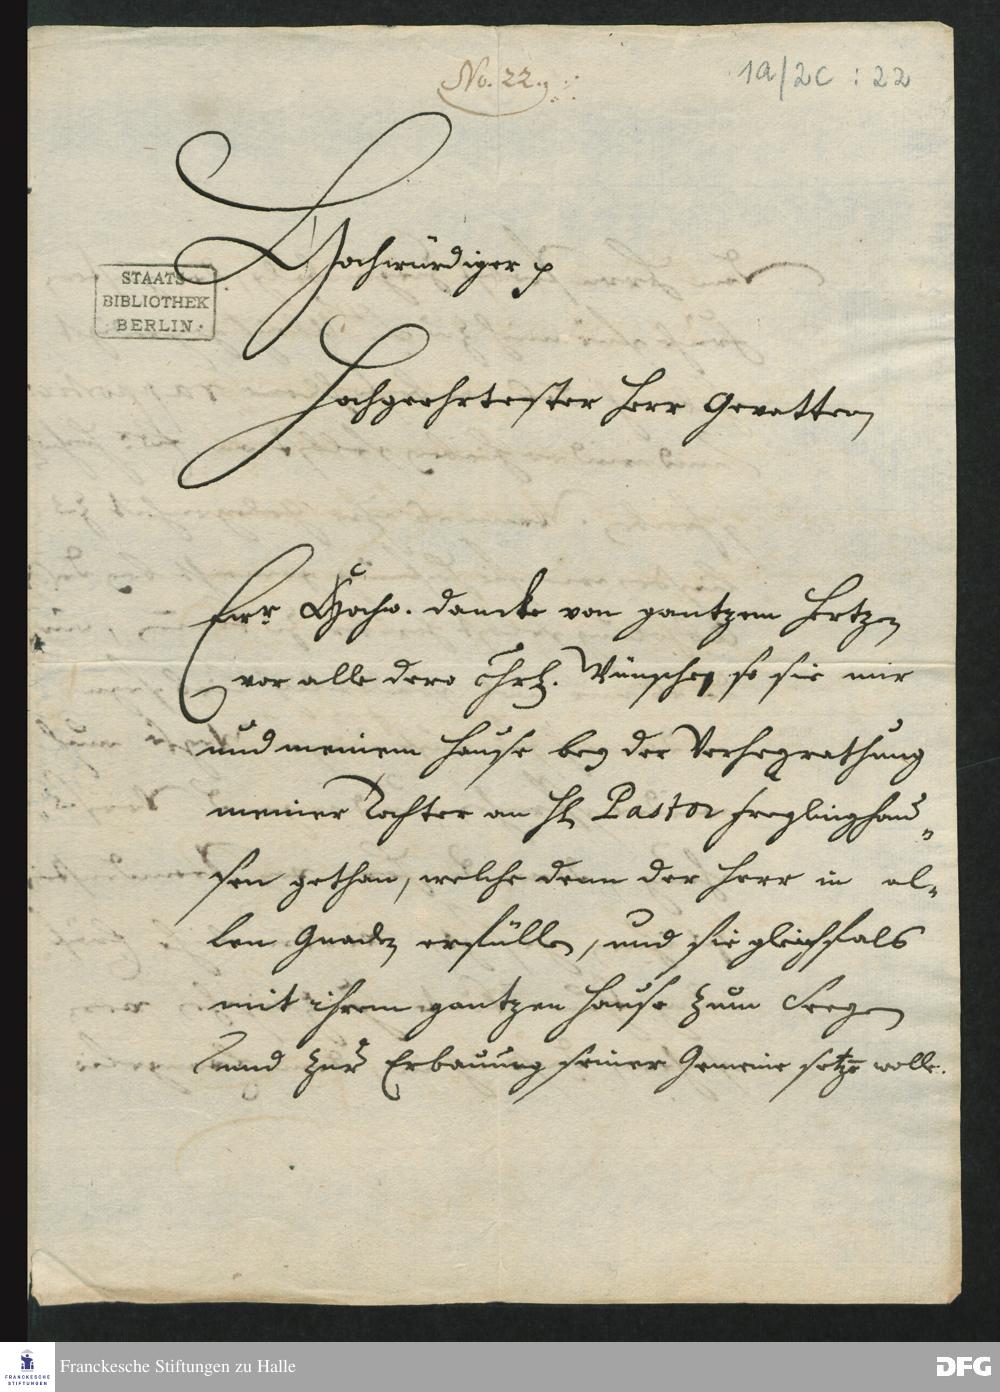 No. 22.
1a/2c : 22
Hochwürdiger p
STAATS
BIBLIOTHEK
BERLIN.
Hochgeehrtester Herr Gevatter,
Ewr Hochw. dancke von gantzem Hertzen
vor alle dero Chrl. Wünsche, so sie mir
und meinem Hause bey der Verheyrathung
meiner Tochter an H. Pastor Freylinghau„
sen gethan, welche denn der Herr in al„
len Gnaden erfüllen, und sie gleichfals
mit ihrem gantzen Hause zum Seegen
und zur Erbauung seiner Gemeine setzen wolle.
FRANCKESCHE
STIFTUNGEN
Franckesche Stiftungen zu Halle
DFG